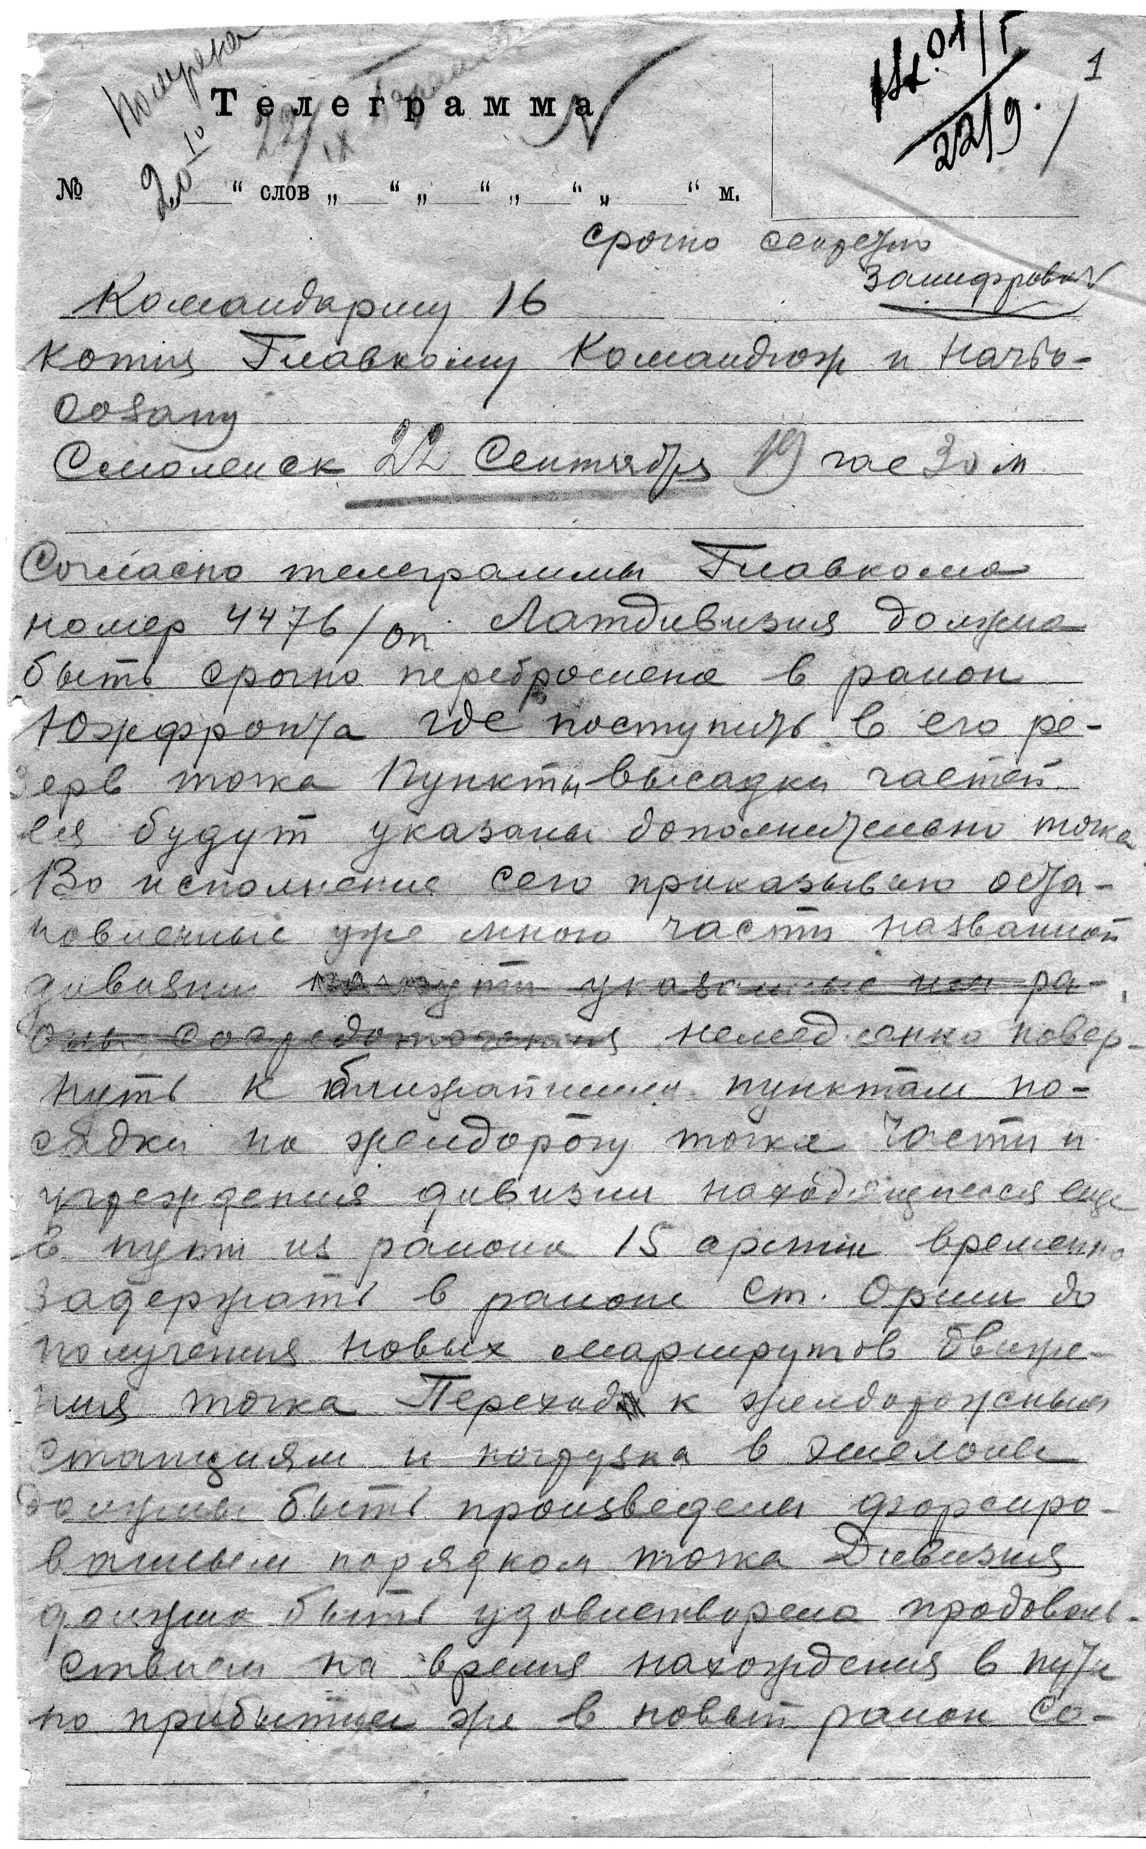 1
Телеграмма
22/IX
22/9.
20 10
№ “ слов „ “ „ “ „ “ „ “ м.
срочно секретно
Командарму 16
копия Главкому Командюж и начво-
Смоленск 22 Сентября 19 час 30 м
Согласно телеграммы Главкома
номер 4476/оп Латдивизия должна
быть срочно переброшена в район
Южфронта где поступить в его ре-
зерв точка Пункты высадки частей
ея будут указаны дополнительно точка
Во исполнение сего приказываю оста-
новленные уже мною части названной
дивизии указанные им ра-
оны сосредоточения немедленно повер-
нуть к ближайшим пунктам по-
садки на желдорогу точка Части и
учреждения дивизии находящиеся еще
в пути из района 15 армии временно
задержать в районе ст. Орши до
получения новых маршрутов движе-
ния точка Переход к желдорожным
станциям и погрузка в эшелоны
должны быть произведены форсиро-
ванным порядком точка Дивизия
должна быть удовлетворена продоволь-
ствием на время нахождения в пути
по прибытии же в новый район со-